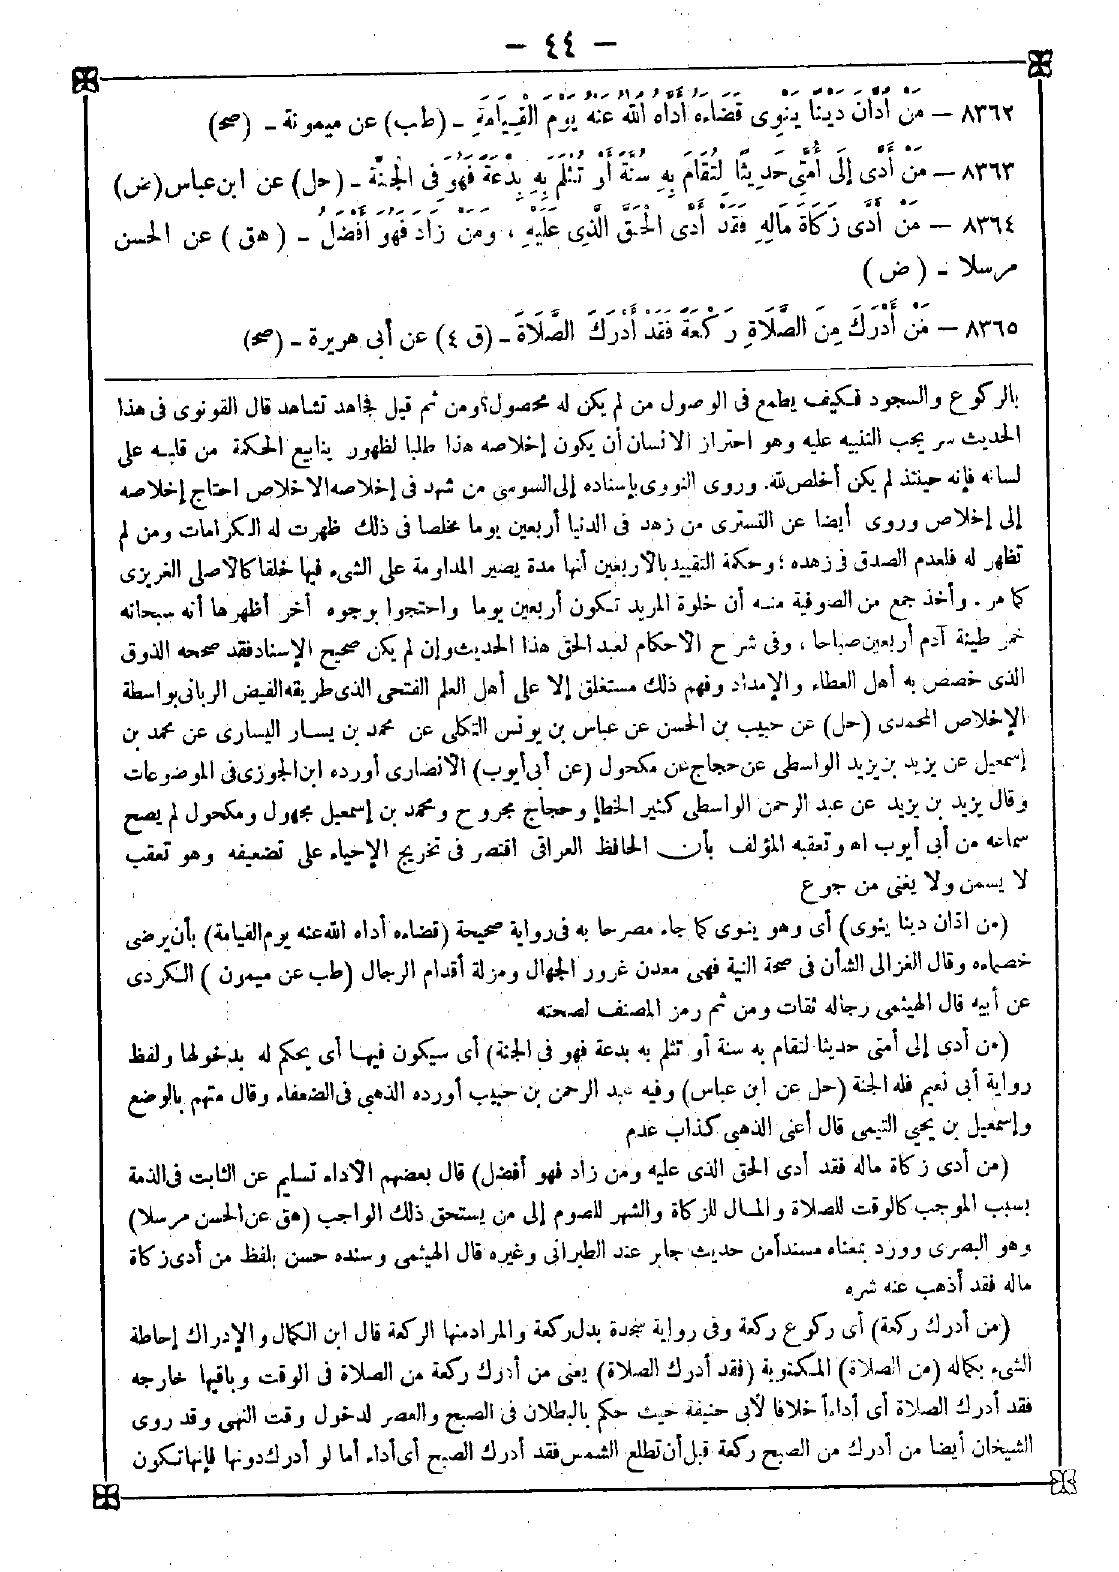 — ٤٤ —
٨٣٦٢ — مَنْ ادَّانَ دَيْنًا يَنْوِى قَضَاءَهُ أَدَّاهُ اللهُ عَنْهُ يَوْمَ الْقِيَامَةِ - (طب) عن ميمونة - (صح)
٨٣٦٣ — مَنْ أَدَّى إِلَى أُمَّتِى حَدِيثًا لِتُقَامَ بِهِ سُنَّةٌ أَوْ تُثْلَمَ بِهِ بِدْعَةٌ فَهُوَ فِى الْجَنَّةِ - (حل) عن ابن عباس (ض)
٨٣٦٤ — مَنْ أَدَّى زَكَاةَ مَالِهِ فَقَدْ أَدَّى الْحَقَّ الَّذِى عَلَيْهِ ، وَمَنْ زَادَ فَهُوَ أَفْضَلُ - (هق) عن الحسن
مرسلا - (ض)
٨٣٦٥ — مَنْ أَدْرَكَ مِنَ الصَّلَاةِ رَكْعَةً فَقَدْ أَدْرَكَ الصَّلَاةَ - (ق ٤) عن أبى هريرة - (صح)
بالركوع والسجود فكيف يطمع فى الوصول من لم يكن له محصول؟ ومن ثم قيل جاهد تشاهد قال القونوى فى هذا
الحديث سر يجب التنبيه عليه وهو احتراز الانسان أن يكون إخلاصه هذا طلبا لظهور ينابيع الحكمة من قلبه على
لسانه فإنه حينئذ لم يكن أخلص لله. وروى النووى بإسناده إلى السوسى من شهد فى إخلاصه الاخلاص احتاج إخلاصه
إلى إخلاص وروى أيضا عن التسترى من زهد فى الدنيا أربعين يوما مخلصا فى ذلك ظهرت له الكرامات ومن لم
تظهر له فلعدم الصدق فى زهده ؛ وحكمة التقييد بالاربعين أنها مدة يصير المداومة على الشىء فيها خلقا كالاصلى الغريزى
كما مر . وأخذ جمع من الصوفية منه أن خلوة المريد تكون أربعين يوما واحتجوا بوجوه أخر أظهرها أنه سبحانه
خمر طينة آدم أربعين صباحا ، وفى شرح الاحكام لعبد الحق هذا الحديث وإن لم يكن صحيح الإسناد فقد صححه الذوق
الذى خصص به أهل العطاء والإمداد وفهم ذلك مستغلق إلا على أهل العلم الفتحى الذى طريقه الفيض الربانى بواسطة
الإخلاص المحمدى (حل) عن حبيب بن الحسن عن عباس بن يونس التكلى عن محمد بن يسار اليسارى عن محمد بن
إسمعيل عن يزيد بن يزيد الواسطى عن حجاج عن مكحول (عن أبى أيوب) الانصارى أورده ابن الجوزى فى الموضوعات
وقال يزيد بن يزيد عن عبد الرحمن الواسطى كثير الخطإ وحجاج مجروح ومحمد بن إسمعيل مجهول ومكحول لم يصح
سماعه من أبى أيوب اه وتعقبه المؤلف بأن الحافظ العراقى اقتصر فى تخريج الإحياء على تضعيفه وهو تعقب
لا يسمن ولا يغنى من جوع
(من ادّان دينا ينوى) أى وهو ينوى كما جاء مصرحا به فى رواية صحيحة (قضاءه أداه الله عنه يوم القيامة) بأن يرضى
خصماءه وقال الغزالى الشأن فى صحة النية فهى معدن غرور الجهال ومزلة أقدام الرجال (طب عن ميمون) الكردى
عن أبيه قال الهيثمى رجاله ثقات ومن ثم رمز المصنف لصحته
(من أدى إلى أمتى حديثا لتقام به سنة أو تثلم به بدعة فهو فى الجنة) أى سيكون فيها أى يحكم له بدخولها ولفظ
رواية أبى نعيم فله الجنة (حل عن ابن عباس) وفيه عبد الرحمن بن حبيب أورده الذهبى فى الضعفاء وقال متهم بالوضع
وإسمعيل بن يحيى التيمى قال أعنى الذهبى كذاب عدم
(من أدى زكاة ماله فقد أدى الحق الذى عليه ومن زاد فهو أفضل) قال بعضهم الأداء تسليم عن الثابت فى الذمة
بسبب الموجب كالوقت للصلاة والمال للزكاة والشهر للصوم إلى من يستحق ذلك الواجب (هق عن الحسن مرسلا)
وهو البصرى وورد بمعناه مسندا من حديث جابر عند الطبرانى وغيره قال الهيثمى وسنده حسن بلفظ من أدى زكاة
ماله فقد أذهب عنه شره
(من أدرك ركعة) أى ركوع ركعة وفى رواية سجدة بدل ركعة والمراد منها الركعة قال ابن الكمال والإدراك إحاطة
الشىء بكماله (من الصلاة) المكتوبة (فقد أدرك الصلاة) يعنى من أدرك ركعة من الصلاة فى الوقت وباقيها خارجه
فقد أدرك الصلاة أى أداءاً خلافا لأبى حنيفة حيث حكم بالبطلان فى الصبح والعصر لدخول وقت النهى وقد روى
الشيخان أيضا من أدرك من الصبح ركعة قبل أن تطلع الشمس فقد أدرك الصبح أى أداء أما لو أدرك دونها فإنها تكون